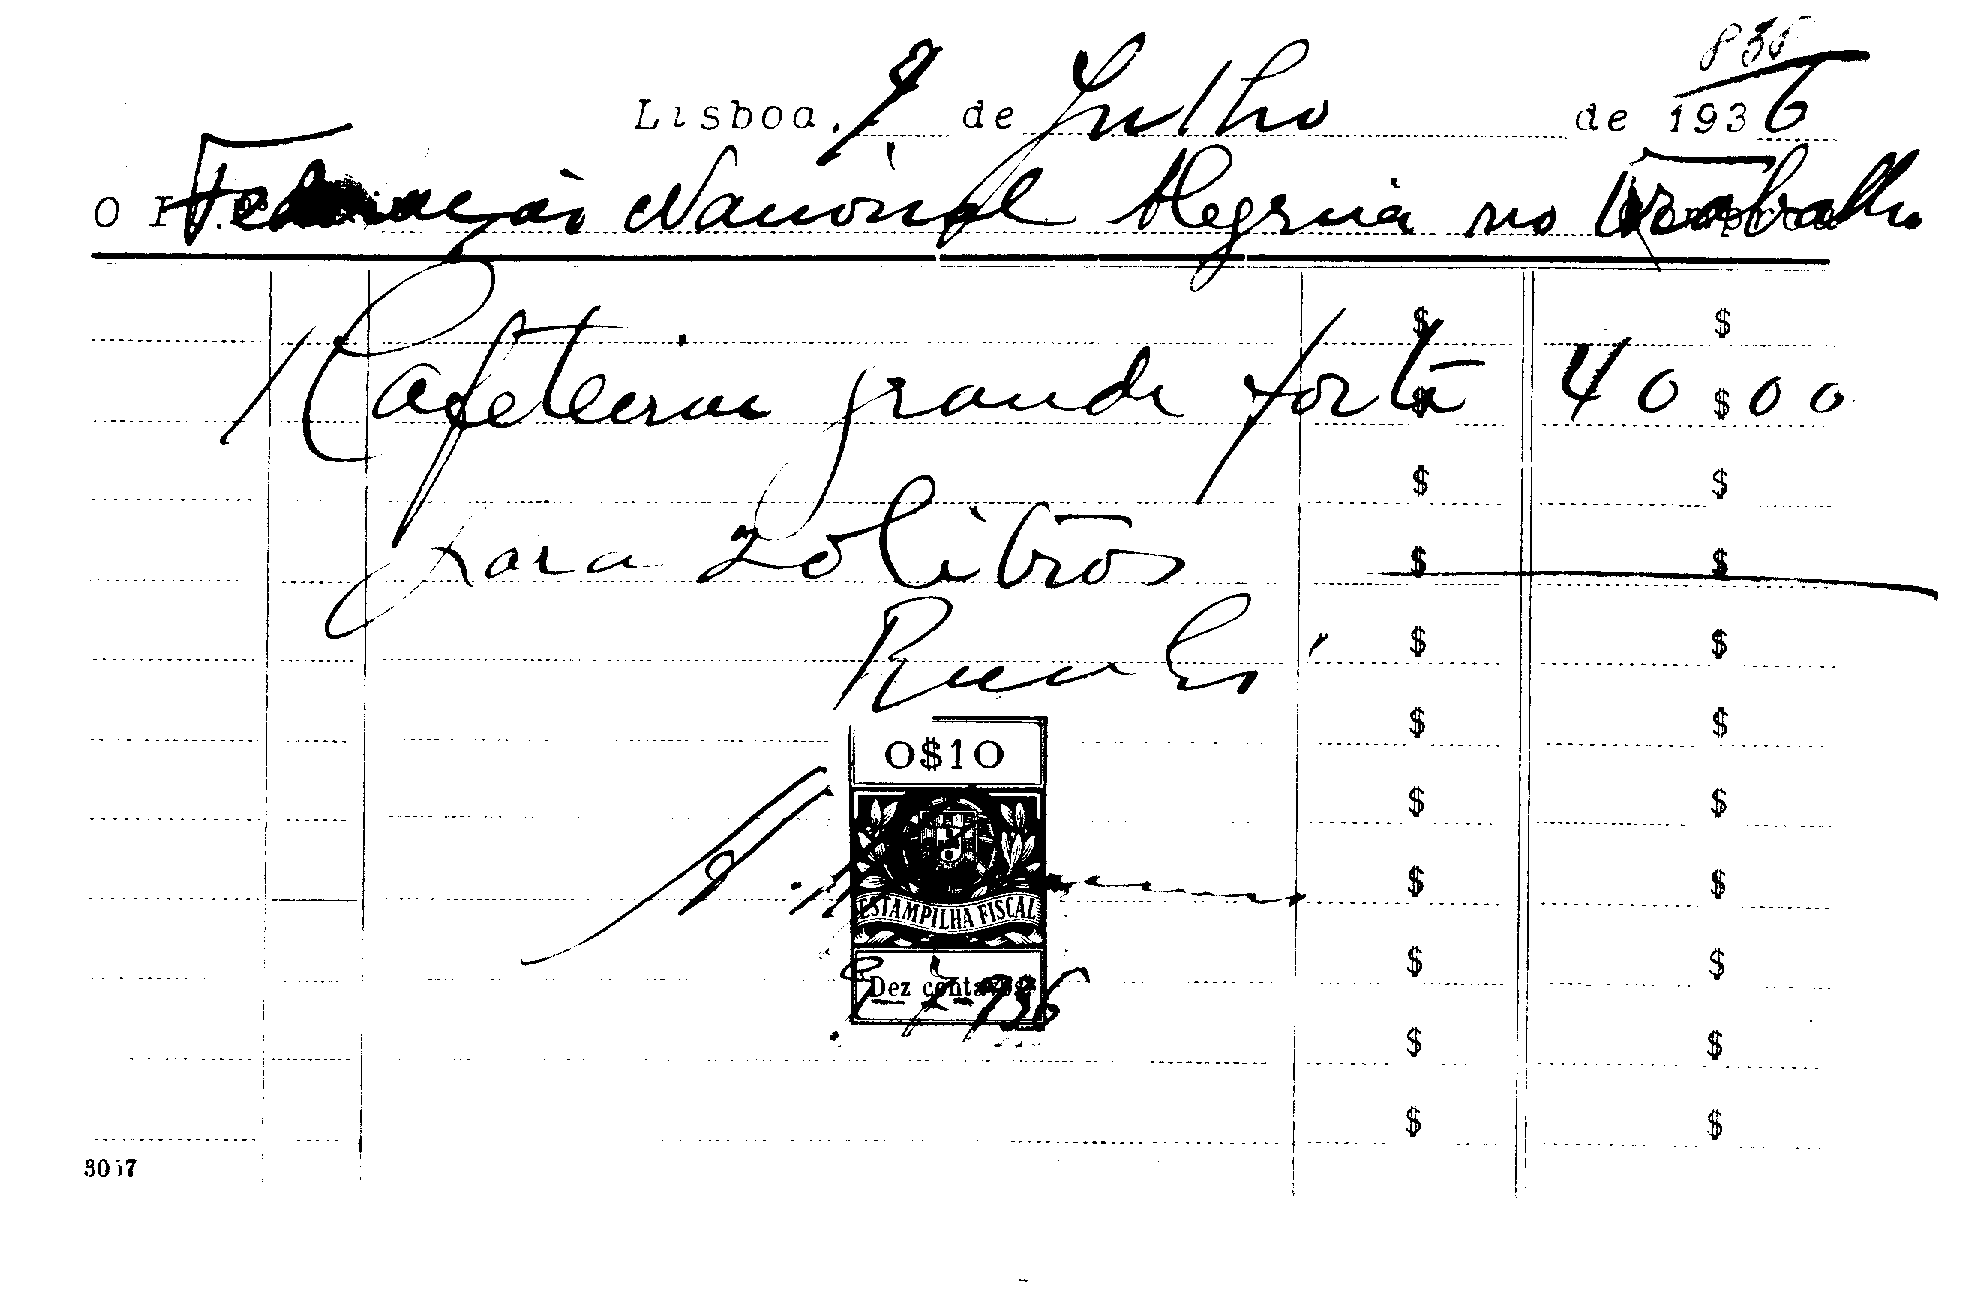 838
Lisboa, 9 de Julho de 1936
O Federação Nacional Alegria no Trabalho
1 Cafeteira grande forte 40$00
para 20 litros
Recebi
0$10
ESTAMPILHA FISCAL
Dez centavos
9-7-936
3017